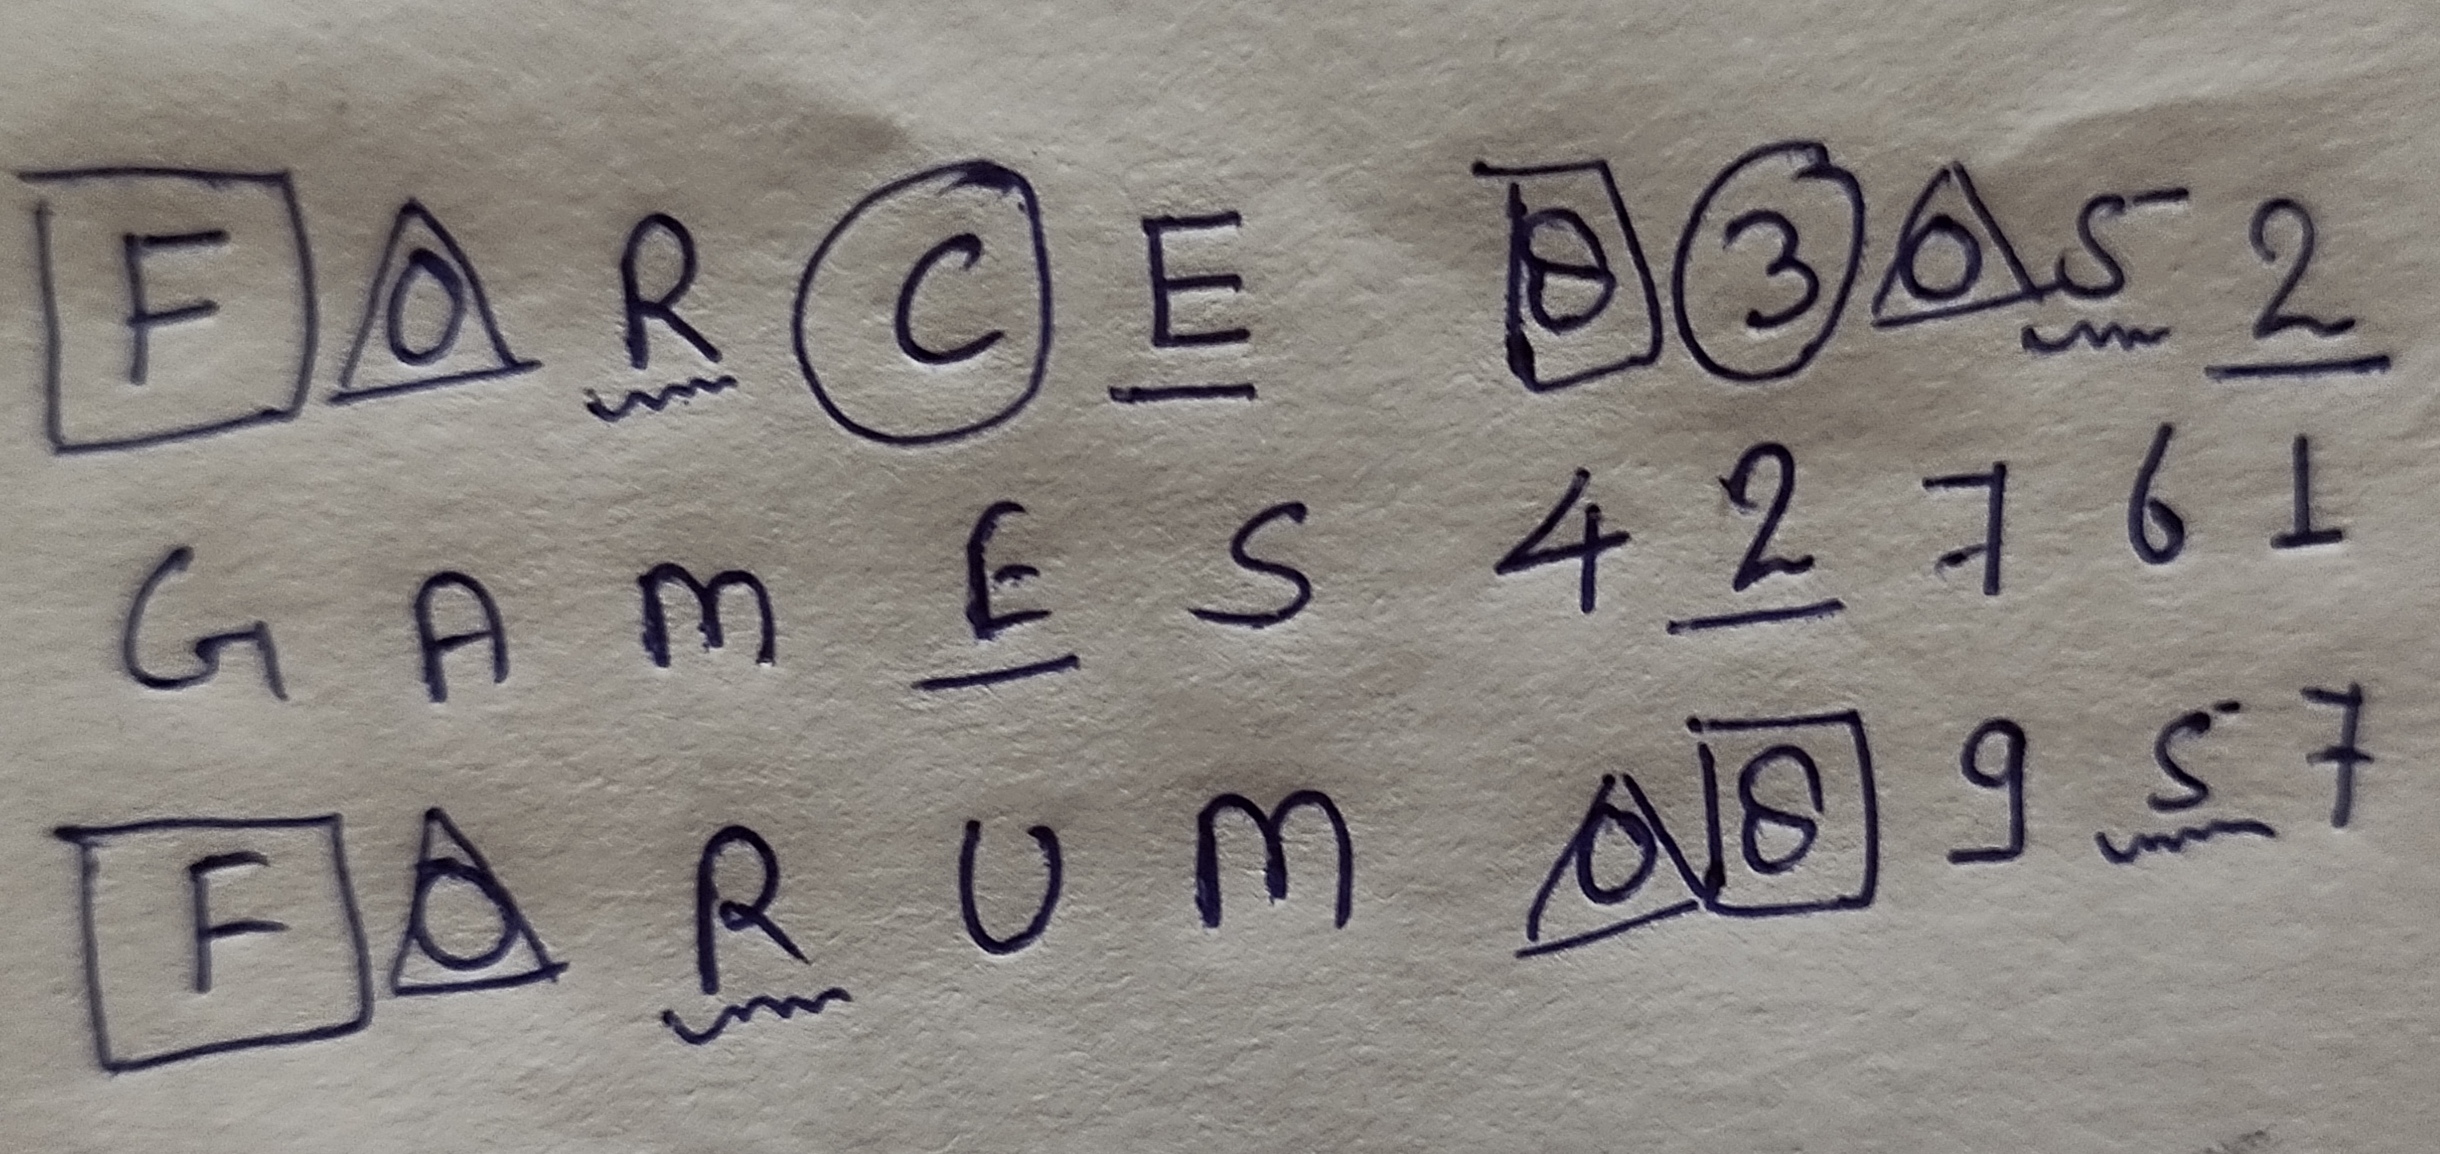 F O R C E 8 3 0 5 2
G A M E S 4 2 7 6 1
F O R U M 0 8 9 5 7